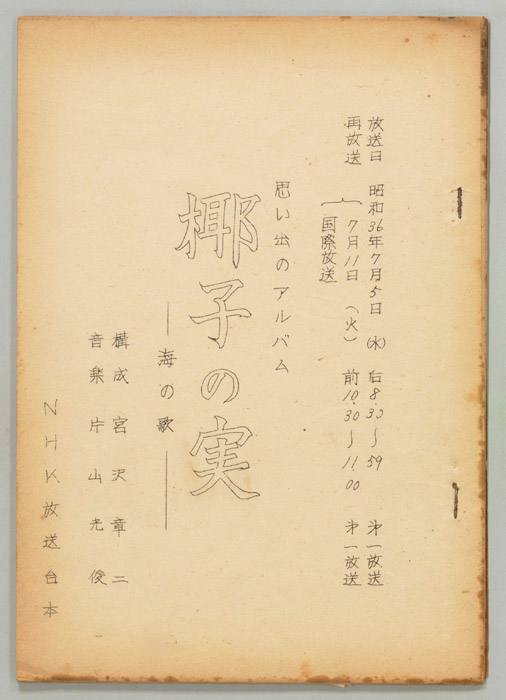 放送日 昭和36年7月5日(水) 后8.30〜59 才一放送
再放送 7月11日(火) 前10.30〜11.00 才一放送
国際放送
思い出のアルバム
椰子の実
―海の歌―
構成 宮沢章二
音楽 片山光俊
NHK放送台本